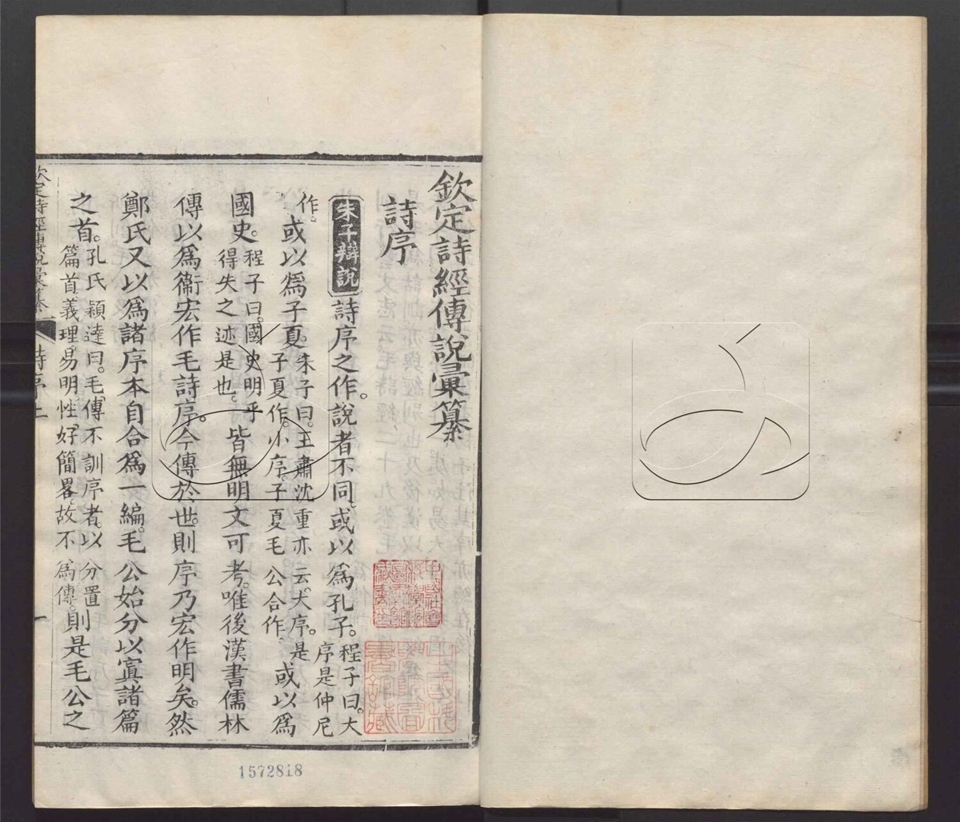 欽定詩經傳說彙纂
詩序
朱子辯說 詩序之作。說者不同。或以爲孔子。程子曰。大序是仲尼
作。或以爲子夏。朱子曰。王肅沈重亦云。大序是子夏作。小序。子夏毛公合作。或以爲
國史。程子曰。國史明乎得失之迹是也。皆無明文可考。唯後漢書儒林
傳以爲衞宏作毛詩序。今傳於世。則序乃宏作明矣。然
鄭氏又以爲諸序本自合爲一編。毛公始分以寘諸篇
之首。孔氏穎達曰。毛傳不訓序者。以分置篇首。義理易明。性好簡畧。故不爲傳。則是毛公之
欽定詩經傳說彙纂
詩序上
一
1572818